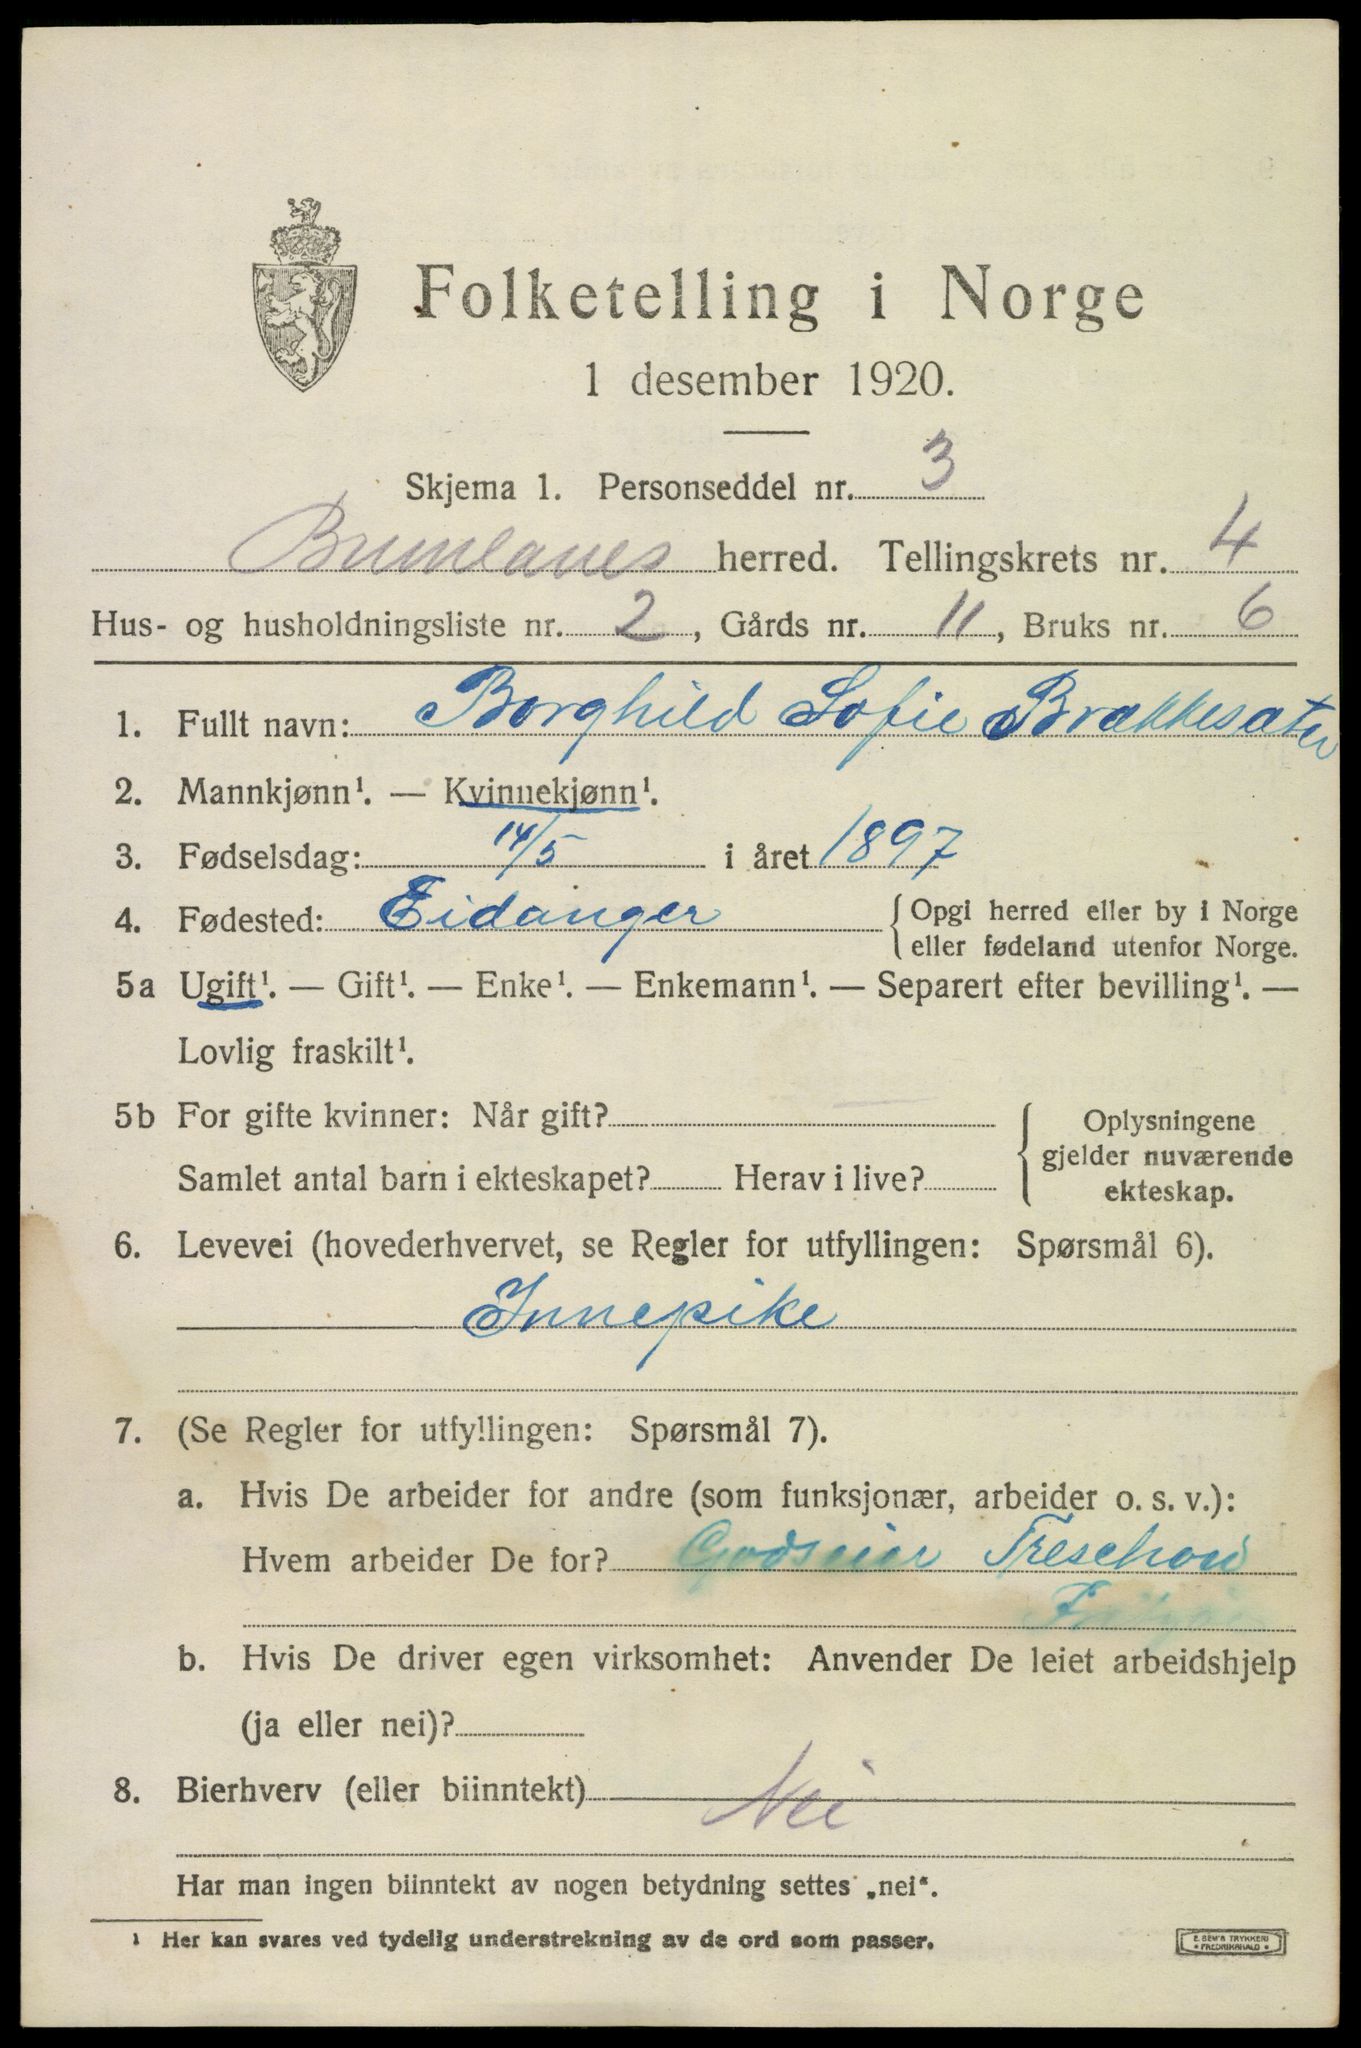 Folketelling i Norge
1 desember 1920.
Skjema 1. Personseddel nr. 3
Brunlanes herred. Tellingskrets nr. 4
Hus- og husholdningsliste nr. 2, Gårds nr. 11, Bruks nr. 6
1. Fullt navn: Borghild Sofie Brækkesæter
2. Mannkjønn¹. — Kvinnekjønn¹.
3. Fødselsdag: 14/5 i året 1897
4. Fødested: Eidanger { Opgi herred eller by i Norge
eller fødeland utenfor Norge.
5a Ugift¹. — Gift¹. — Enke¹. — Enkemann¹. — Separert efter bevilling¹. —
Lovlig fraskilt¹.
5b For gifte kvinner: Når gift?
Samlet antal barn i ekteskapet? Herav i live?
{ Oplysningene
gjelder nuværende
ekteskap.
6. Levevei (hovederhvervet, se Regler for utfyllingen: Spørsmål 6).
Innepike
7. (Se Regler for utfyllingen: Spørsmål 7).
a. Hvis De arbeider for andre (som funksjonær, arbeider o. s. v.):
Hvem arbeider De for? Godseier Treschow
b. Hvis De driver egen virksomhet: Anvender De leiet arbeidshjelp
(ja eller nei)?
8. Bierhverv (eller biinntekt) Nei
Har man ingen biinntekt av nogen betydning settes „nei“.
¹ Her kan svares ved tydelig understrekning av de ord som passer.
E. SEM'S TRYKKERI
• FREDRIKSHALD •